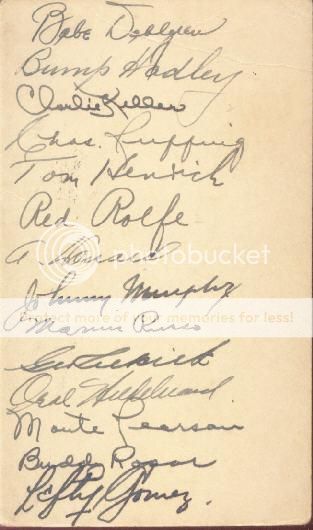 Babe Dahlgren
Bump Hadley
Charlie Keller
Chas. Ruffing
Tom Henrich
Red Rolfe
photobucket
Johnny Murphy
more of your memories for less!
Marius Russo
Oral Hildebrand
Monte Pearson
Buddy Rosar
Lefty Gomez.